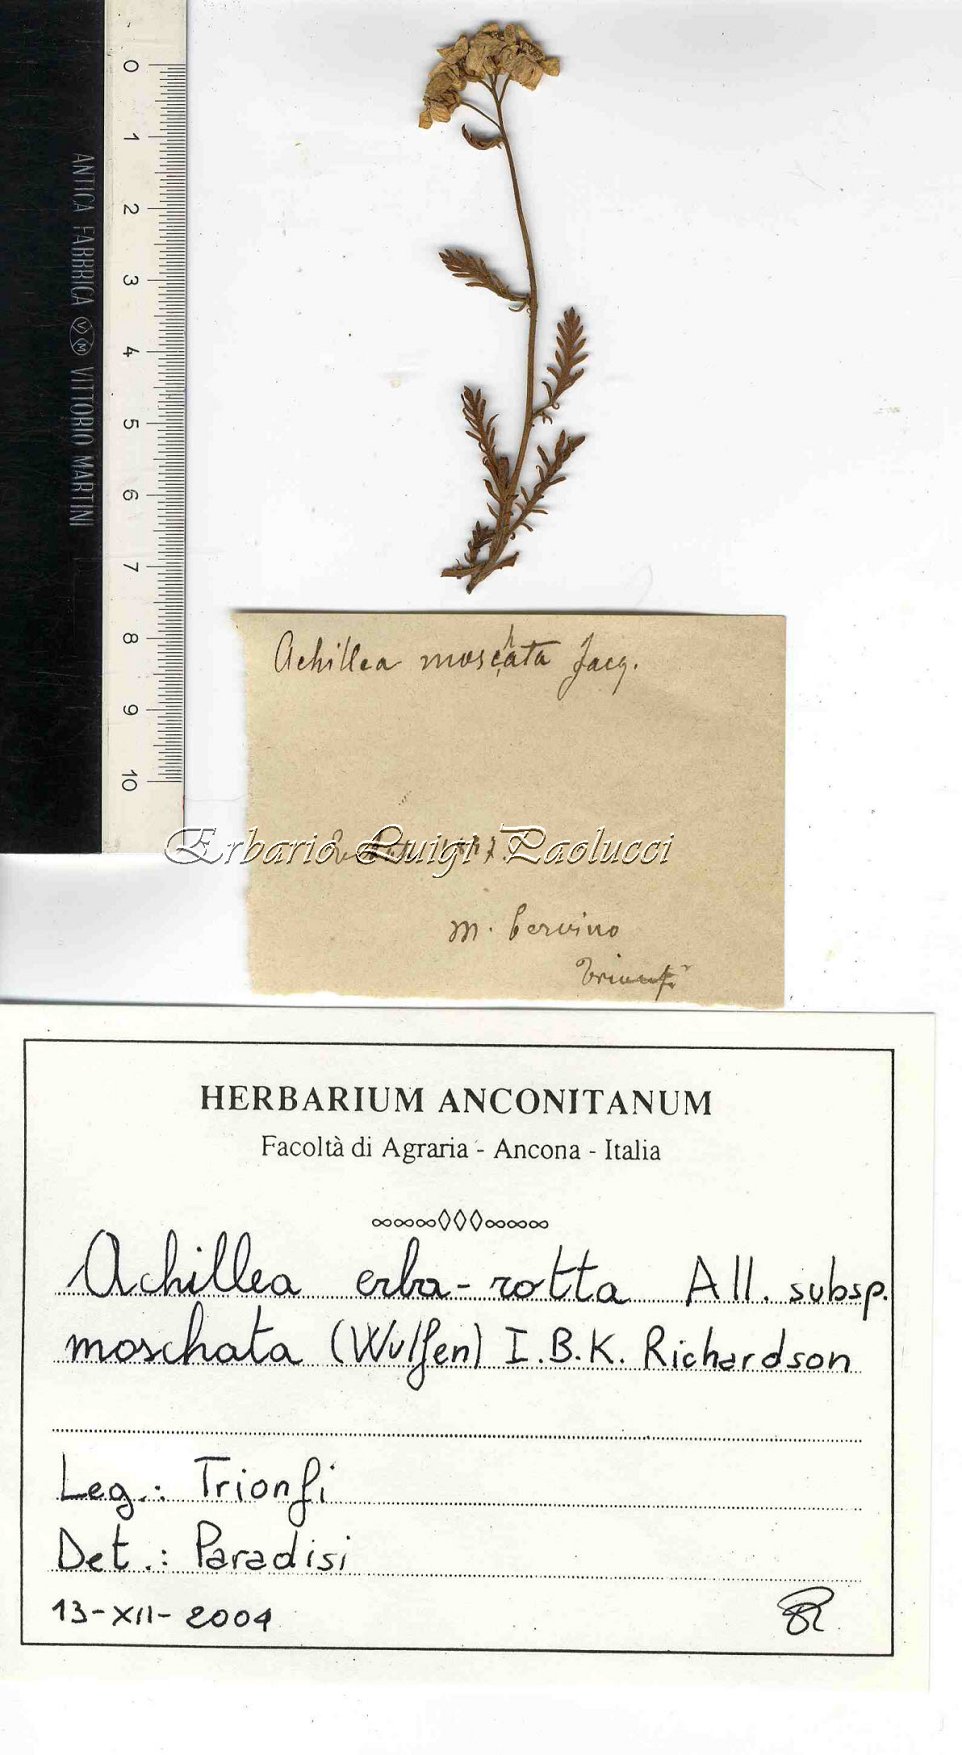 0
1
2
3
4
5
6
7
8
9
10
ANTICA FABBRICA VM VITTORIO MARTINI
Achillea moschata Jacq.
Erbario Luigi Paolucci
M. Cervino
Trionfi
HERBARIUM ANCONITANUM
Facoltà di Agraria - Ancona - Italia
Achillea erba-rotta All. subsp.
moschata (Wulfen) I.B.K. Richardson
Leg.: Trionfi
Det.: Paradisi
13-XII-2004